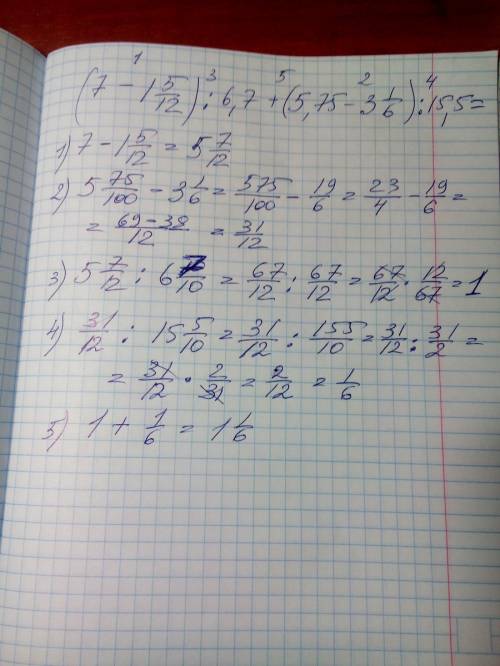 1 3 5 2 4
(7 - 1 5/12) : 6,7 + (5,75 - 3 1/6) : 15,5 =
1) 7 - 1 5/12 = 5 7/12
2) 5 75/100 - 3 1/6 = 575/100 - 19/6 = 23/4 - 19/6 =
= 69-38/12 = 31/12
3) 5 7/12 : 6 7/10 = 67/12 : 67/12 = 67/12 · 12/67 = 1
4) 31/12 : 15 5/10 = 31/12 : 155/10 = 31/12 : 31/2 =
= 31/12 · 2/31 = 2/12 = 1/6
5) 1 + 1/6 = 1 1/6